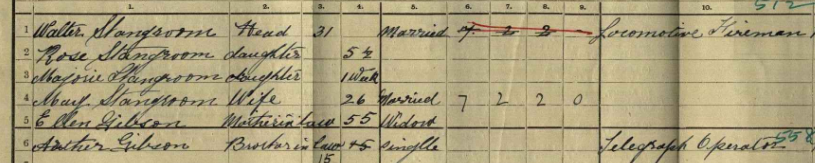 1. 2. 3. 4. 5. 6. 7. 8. 9. 10. 512
1 Walter Stangroom Head 31 Married 7 2 2 Locomotive Fireman
2 Rose Stangroom daughter 5½
3 Marjorie Stangroom daughter 1 Week
4 Mary Stangroom Wife 26 Married 7 2 2 0
5 Ellen Gibson Mother in law 55 Widow
6 Arther Gibson Brother in law 15 single Telegraph Operator 558
15